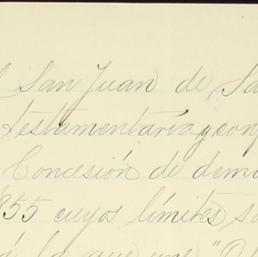 San Juan de Sa
testamentaria y con
Concesión de dema
855 cuyos límites so
la que une "O